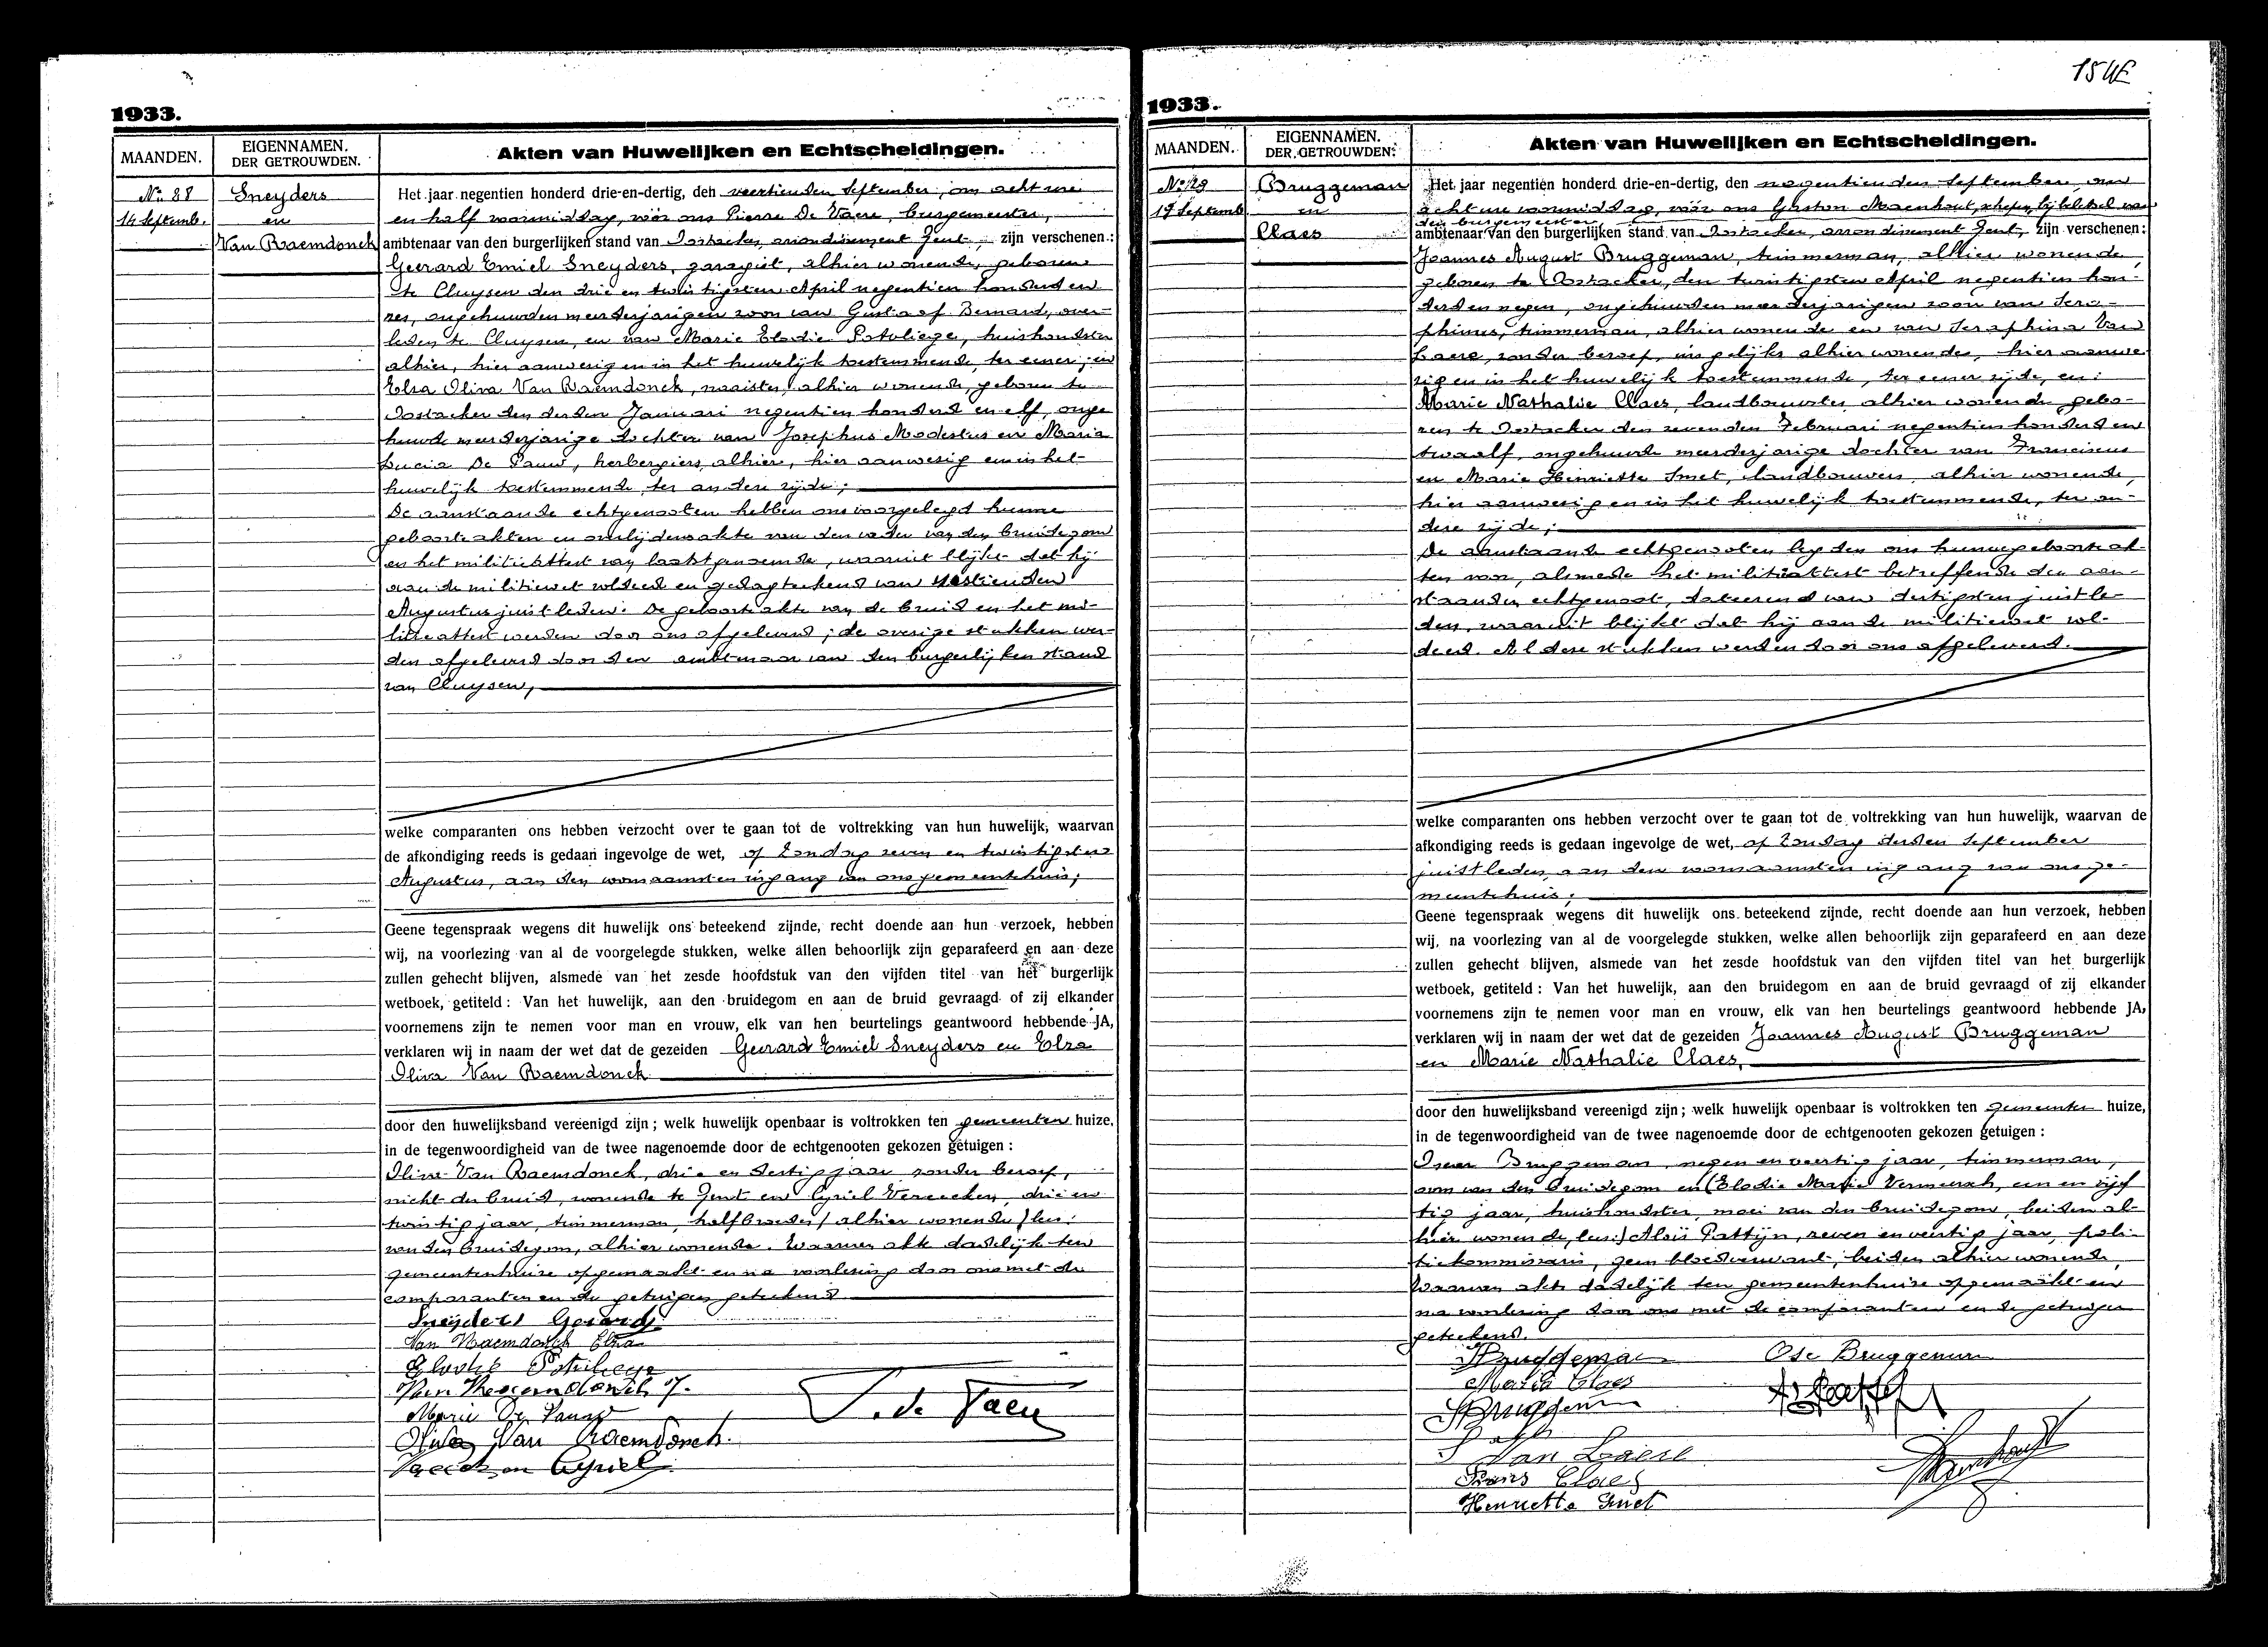 1933.
MAANDEN.
EIGENNAMEN.
DER GETROUWDEN.
Akten van Huwelijken en Echtscheidingen.
No 28
14 Septemb.
Sneyders
en
Van Raemdonck
Het jaar negentien honderd drie-en-dertig, den veertienden September, om acht ure
en half voormiddag, vóór ons Pierre De Vaere, burgemeester,
ambtenaar van den burgerlijken stand van Oostacker, arrondissement Gent, zijn verschenen:
Geerard Emiel Sneyders, garagist, alhier wonende, geboren
te Cluysen den drie en twintigsten April negentien honderd en
zes, ongehuwden meerderjarigen zoon van Gustaaf Bernard, over-
leden te Cluysen, en van Marie Elodie Potvliege, huishoudster
alhier, hier aanwezig en in het huwelijk toestemmende, ter eener; en
Elza Oliva Van Raemdonck, naaister, alhier wonende, geboren te
Oostacker den derden Januari negentien honderd en elf, onge
huwde meerderjarige dochter van Josephus Modestus en Maria
Lucia De Pauw, herbergiers, alhier, hier aanwezig en in het
huwelijk toestemmende, ter andere zijde;
De aanstaande echtgenooten hebben ons voorgelegd hunne
geboorteakten en overlijdensakte van den vader van den bruidegom
en het militieattest van laatstgenoemde, waaruit blijkt dat hij
aan de militiewet voldeed en gedagteekend van zestienden
Augustus juistleden. De geboorteakte van de bruid en het mi-
litieattest werden door ons afgeleverd; de overige stukken wer-
den afgeleverd door den ambtenaar van den burgerlijken stand
van Cluysen,
welke comparanten ons hebben verzocht over te gaan tot de voltrekking van hun huwelijk, waarvan
de afkondiging reeds is gedaan ingevolge de wet, op Zondag zeven en twintigsten
Augustus, aan den voornaamsten ingang van ons gemeentehuis;
Geene tegenspraak wegens dit huwelijk ons beteekend zijnde, recht doende aan hun verzoek, hebben
wij, na voorlezing van al de voorgelegde stukken, welke allen behoorlijk zijn geparafeerd en aan deze
zullen gehecht blijven, alsmede van het zesde hoofdstuk van den vijfden titel van het burgerlijk
wetboek, getiteld: Van het huwelijk, aan den bruidegom en aan de bruid gevraagd of zij elkander
voornemens zijn te nemen voor man en vrouw, elk van hen beurtelings geantwoord hebbende JA,
verklaren wij in naam der wet dat de gezeiden Geerard Emiel Sneyders en Elza
Oliva Van Raemdonck
door den huwelijksband vereenigd zijn; welk huwelijk openbaar is voltrokken ten gemeenten huize,
in de tegenwoordigheid van de twee nagenoemde door de echtgenooten gekozen getuigen:
Oliva Van Raemdonck, drie en dertig jaar, zonder beroep,
nicht der bruid, wonende te Gent en Cyriel Vereecken, drie en
twintig jaar, timmerman, halfbroeder (alhier wonende) lees:
van den bruidegom, alhier wonende. Waarvan akte dadelijk ten
gemeentenhuize opgemaakt en na voorlezing door ons met de
comparanten en de getuigen geteekend
Sneyders Gerard
Van Raemdonck Elza
Elodie Potvliege
Van Raemdonck J.
Marie De Pauw
Oliva Van Raemdonck.
Vereecken Cyriel
P. de Vaere
154E
1933.
MAANDEN.
EIGENNAMEN.
DER GETROUWDEN.
Akten van Huwelijken en Echtscheidingen.
No 129
19 Septemb
Bruggeman
en
Claes
Het jaar negentien honderd drie-en-dertig, den negentienden September, om
acht ure voormiddag, vóór ons Gaston Maenhout, schepen, bij belet van
den burgemeester,
ambtenaar van den burgerlijken stand van Oostacker, arrondissement Gent, zijn verschenen:
Joannes August Bruggeman, timmerman, alhier wonende,
geboren te Oostacker, den twintigsten April negentien hon-
derd en negen, ongehuwden meerderjarigen zoon van Sera-
phinus, timmerman, alhier wonende en van Seraphina Van
Laere, zonder beroep, insgelijks alhier wonende, hier aanwe
zig en in het huwelijk toestemmende, ter eener zijde, en:
Marie Nathalie Claes, landbouwster, alhier wonende, gebo-
ren te Oostacker den zevenden Februari negentien honderd en
twaalf, ongehuwde meerderjarige dochter van Franciscus
en Marie Henriette Smet, landbouwers, alhier wonende,
hier aanwezig en in het huwelijk toestemmende, ter an-
dere zijde;
De aanstaande echtgenooten legden ons hunne geboorteak-
ten voor, alsmede het militieattest betreffende den aan-
staanden echtgenoot, dateerend van dertigsten juistle-
den, waaruit blijkt dat hij aan de militiewet vol-
deed. Al deze stukken werden door ons afgeleverd.
welke comparanten ons hebben verzocht over te gaan tot de voltrekking van hun huwelijk, waarvan de
afkondiging reeds is gedaan ingevolge de wet, op Zondag derden September
juistleden, aan den voornaamsten ingang van ons ge-
meentehuis;
Geene tegenspraak wegens dit huwelijk ons beteekend zijnde, recht doende aan hun verzoek, hebben
wij, na voorlezing van al de voorgelegde stukken, welke allen behoorlijk zijn geparafeerd en aan deze
zullen gehecht blijven, alsmede van het zesde hoofdstuk van den vijfden titel van het burgerlijk
wetboek, getiteld: Van het huwelijk, aan den bruidegom en aan de bruid gevraagd of zij elkander
voornemens zijn te nemen voor man en vrouw, elk van hen beurtelings geantwoord hebbende JA,
verklaren wij in naam der wet dat de gezeiden Joannes August Bruggeman
en Marie Nathalie Claes,
door den huwelijksband vereenigd zijn; welk huwelijk openbaar is voltrokken ten gemeenten huize,
in de tegenwoordigheid van de twee nagenoemde door de echtgenooten gekozen getuigen:
Oscar Bruggeman, negen en veertig jaar, timmerman,
oom van den bruidegom en (Elodie Marie Vermeersch, een en vijf
tig jaar, huishoudster, moei van den bruidegom, beiden al-
hier wonende, lees:) Aloïs Pattijn, zeven en veertig jaar, poli-
tiekommissaris, geen bloedverwant, beiden alhier wonende,
Waarvan akte dadelijk ten gemeentenhuize opgemaakt en
na voorlezing door ons met de comparanten en de getuigen
geteekend.
Bruggeman
Osc Bruggeman
Maria Claes
Bruggeman
S Van Laere
Frans Claes
Henriette Smet